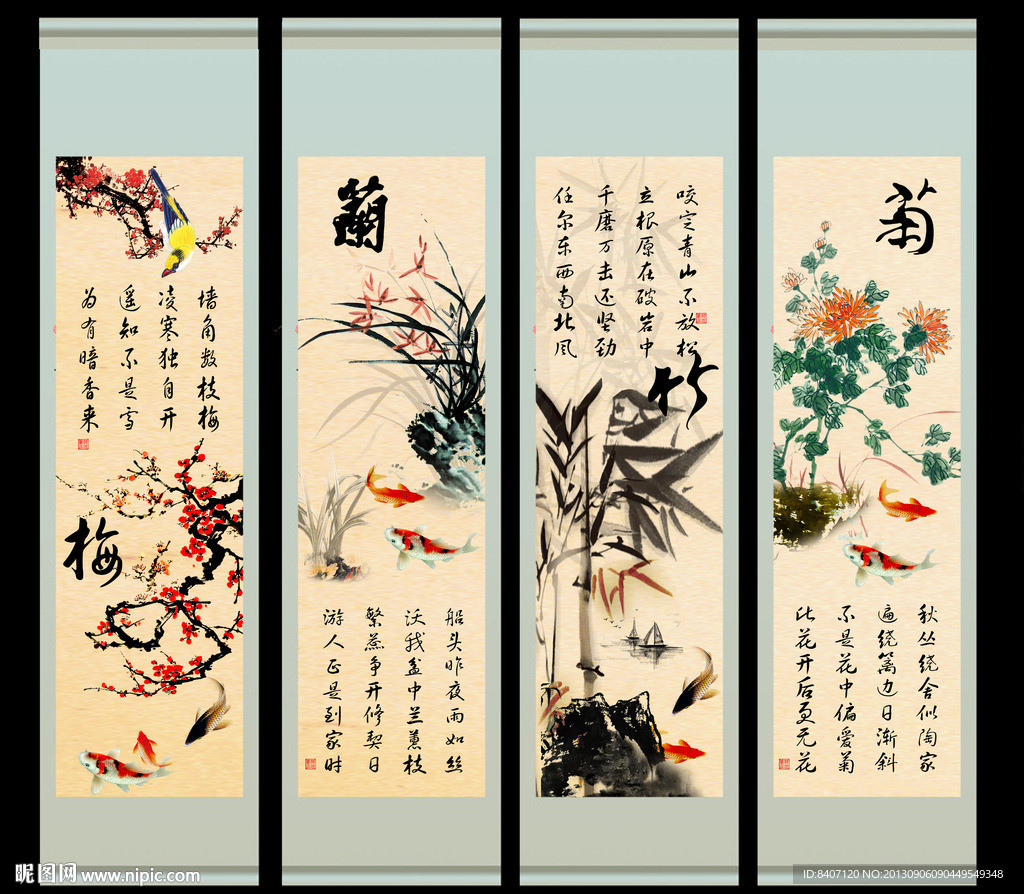 墙角数枝梅
凌寒独自开
遥知不是雪
为有暗香来
梅
蘭
船头昨夜雨如丝
沃我盆中兰蕙枝
繁蕊争开修契日
游人正是到家时
咬定青山不放松
立根原在破岩中
千磨万击还坚劲
任尔东西南北风
竹
菊
秋丛绕舍似陶家
遍绕篱边日渐斜
不是花中偏爱菊
此花开后更无花
昵图网 www.nipic.com
ID:8407120 NO:20130906090449549348